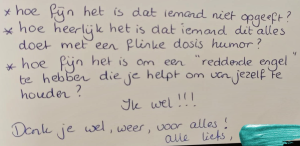 * hoe fijn het is dat iemand niet opgeeft?
* hoe heerlijk het is dat iemand dit alles
doet met een flinke dosis humor?
* hoe fijn het is om een "reddende engel"
te hebben die je helpt om van jezelf te
houden?
Ik wel!!!
Dank je wel, weer, voor alles!
alle liefs,